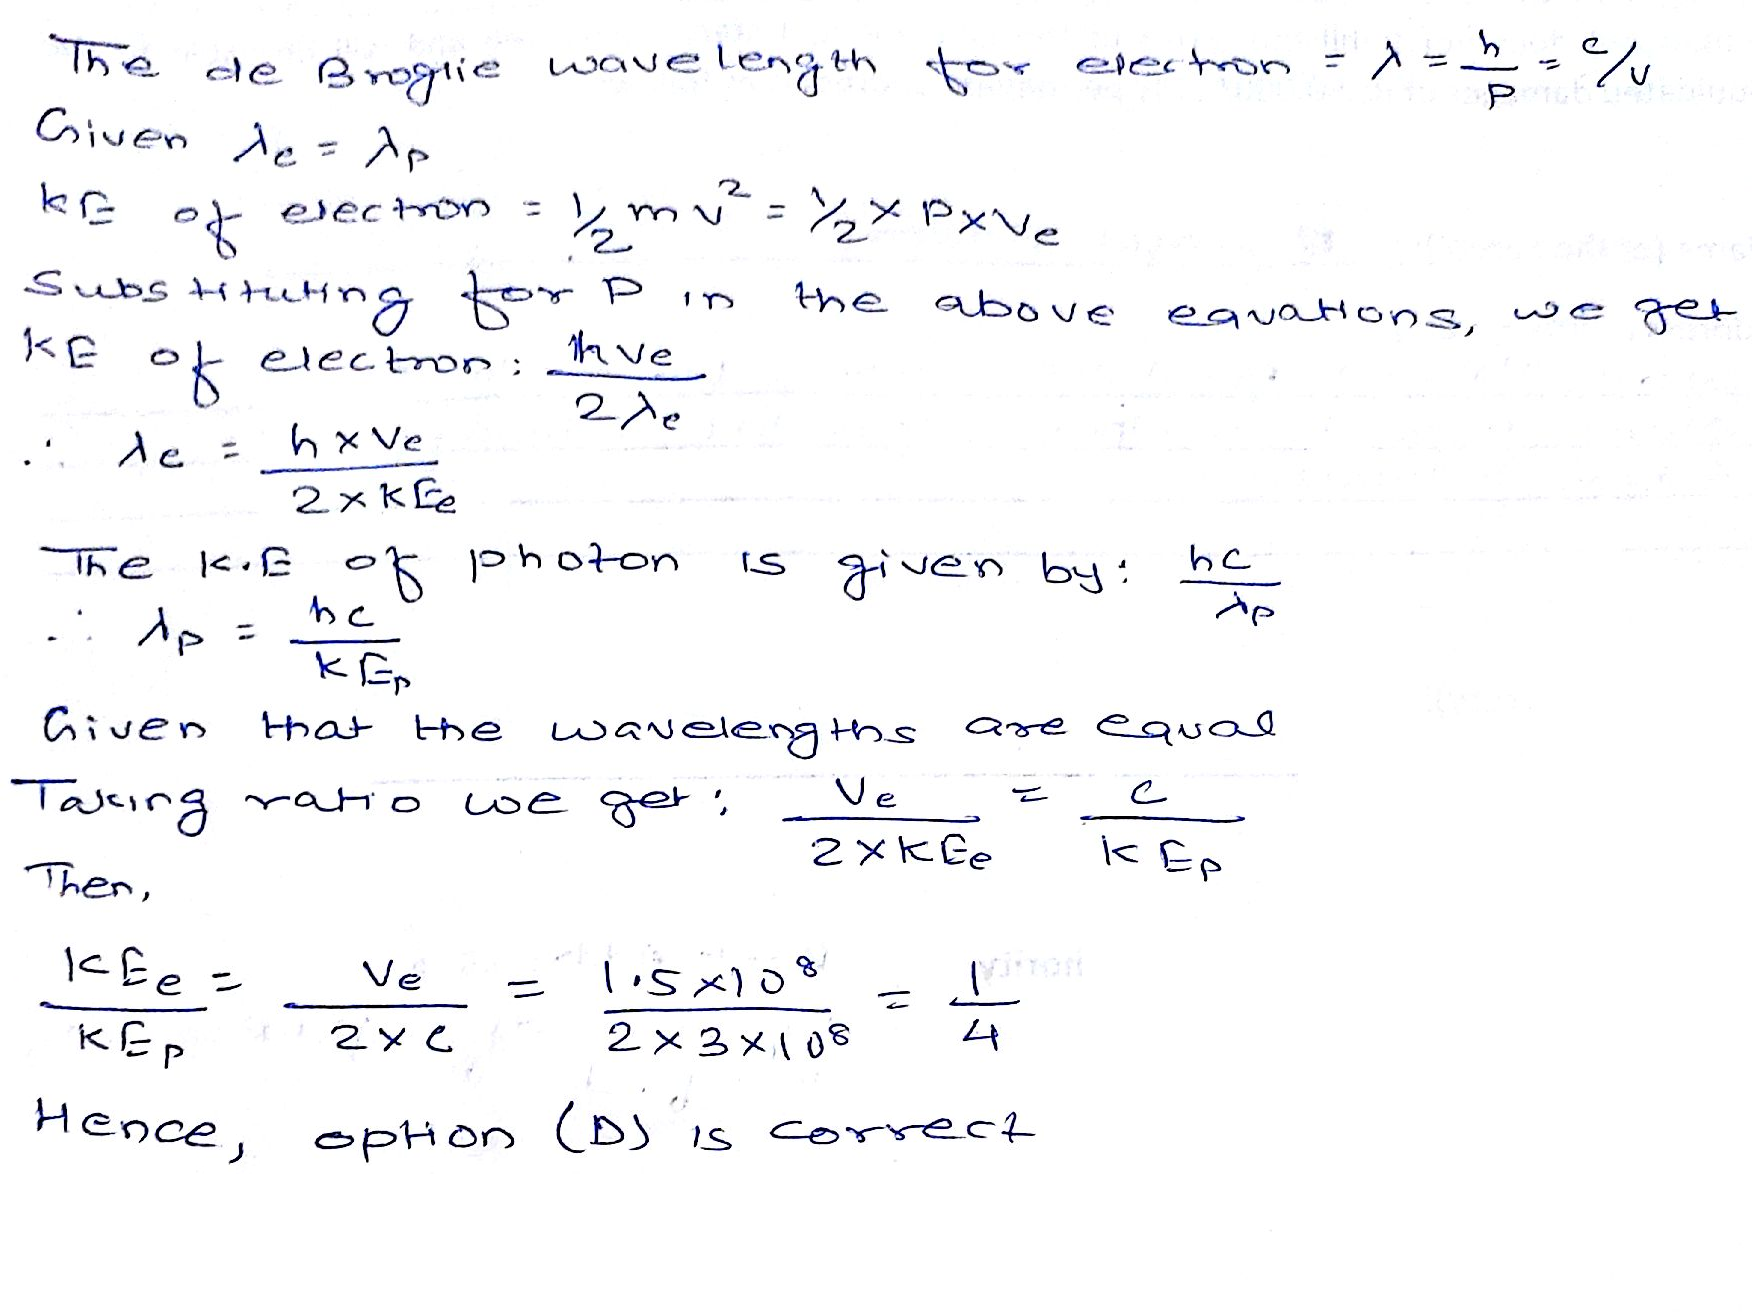 The de Broglie wavelength for electron = λ = h/P = c/ν
Given λe = λp
KE of electron = 1/2 mv² = 1/2 × P×Ve
Substituting for P in the above equations, we get
KE of electron: hve/2λe
∴ λe = h×Ve/2×KEe
The K.E of photon is given by: hc/λp
∴ λp = hc/KEp
Given that the wavelengths are equal
Taking ratio we get: Ve/2×KEe = c/KEp
Then,
KEe/KEp = Ve/2×c = 1.5×10⁸/2×3×10⁸ = 1/4
Hence, option (D) is correct